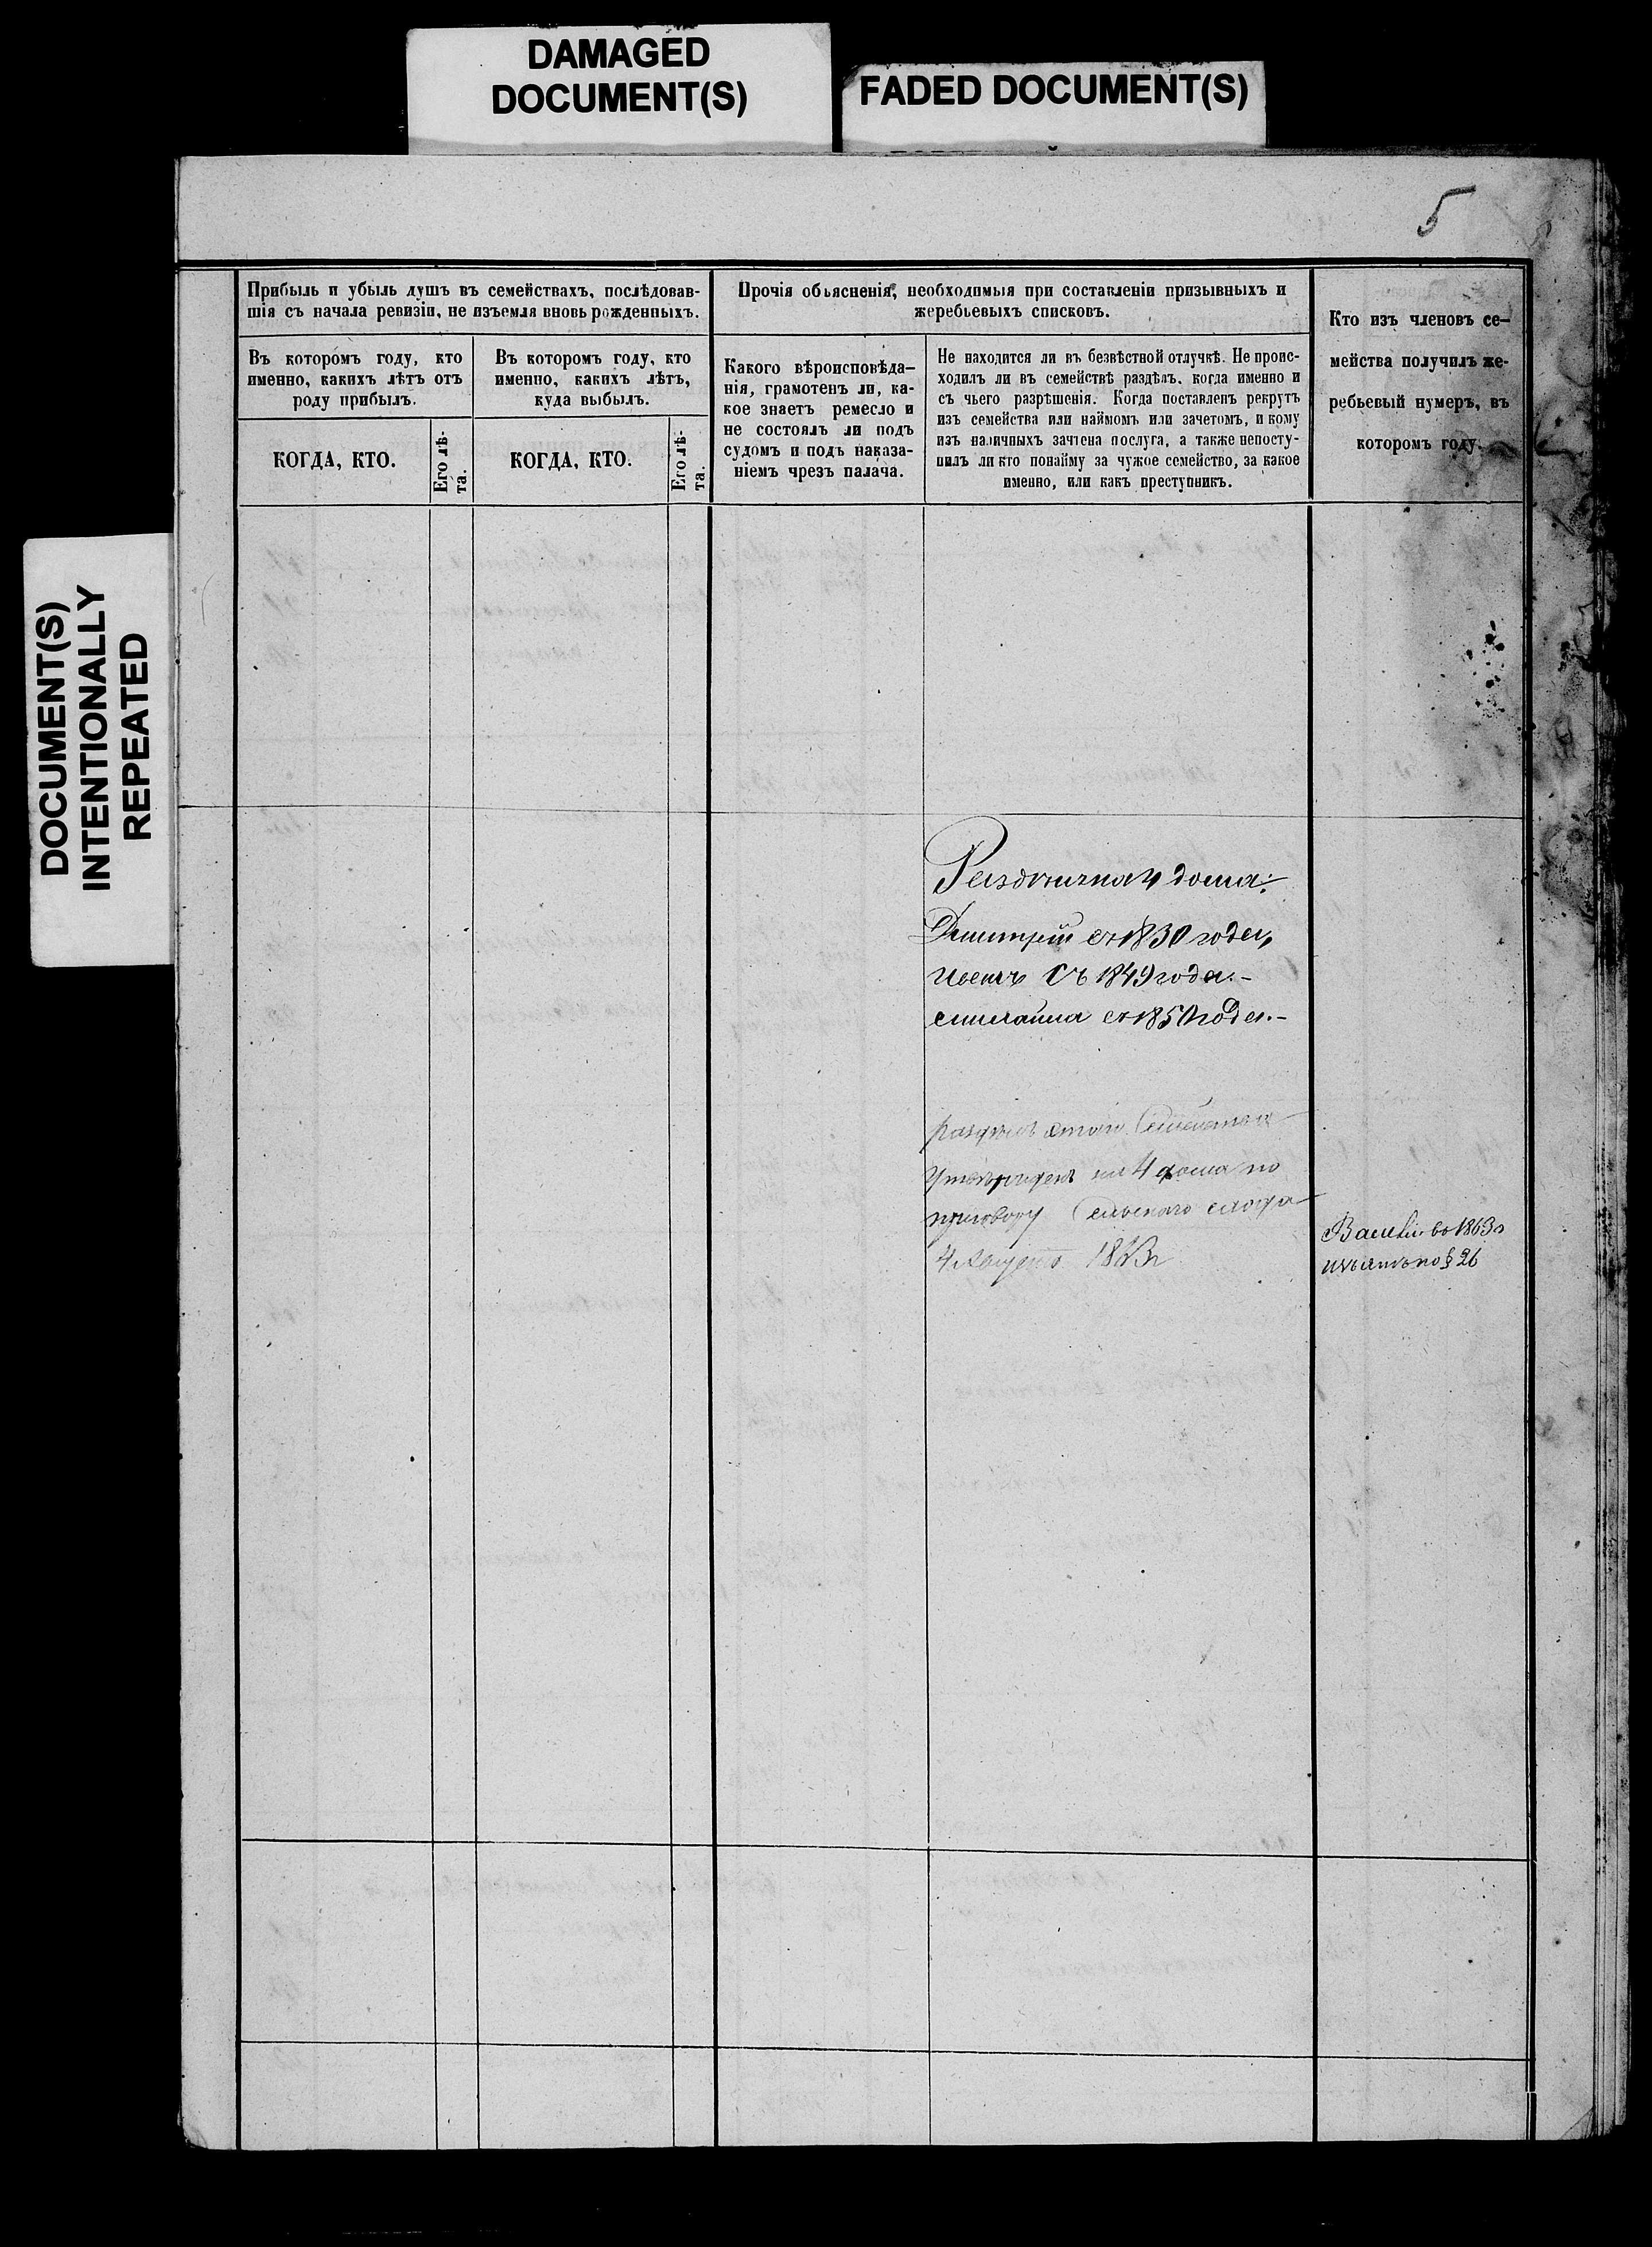 DAMAGED
DOCUMENT(S)
FADED DOCUMENT(S)
DOCUMENT(S)
INTENTIONALLY
REPEATED
5
Прибыль и убыль душъ въ семействахъ, послѣдовав-
шія съ начала ревизіи, не изъемля вновь рожденныхъ.
Въ которомъ году, кто
именно, какихъ лѣтъ отъ
роду прибылъ.
Въ которомъ году, кто
именно, какихъ лѣтъ,
куда выбылъ.
КОГДА, КТО.
Его лѣ-
та.
КОГДА, КТО.
Его лѣ-
та.
Прочія обьясненія, необходимыя при составленіи призывныхъ и
жеребьевыхъ списковъ.
Какого вѣроисповѣда-
нія, грамотенъ ли, ка-
кое знаетъ ремесло и
не состоялъ ли подъ
судомъ и подъ наказа-
ніемъ чрезъ палача.
Не находится ли въ безвѣстной отлучкѣ. Не проис-
ходилъ ли въ семействѣ раздѣлъ, когда именно и
съ чьего разрѣшенія. Когда поставленъ рекрутъ
изъ семейства или наймомъ или зачетомъ, и кому
изъ наличныхъ зачтена послуга, а также непосту-
пилъ ли кто понайму за чужое семейство, за какое
именно, или какъ преступникъ.
Кто изъ членовъ се-
мейства получилъ же-
ребьевый нумеръ, въ
которомъ году.
на 4 дома:
Дмитрій съ 1830 года,
съ 1849 года.-
съ 1850 года.-
раздѣлъ этого Семейства
Утвержденъ на 4 дома по
приговору Сельскаго схода
4 Августа
Василій въ 1863 г
изъятъ по § 26